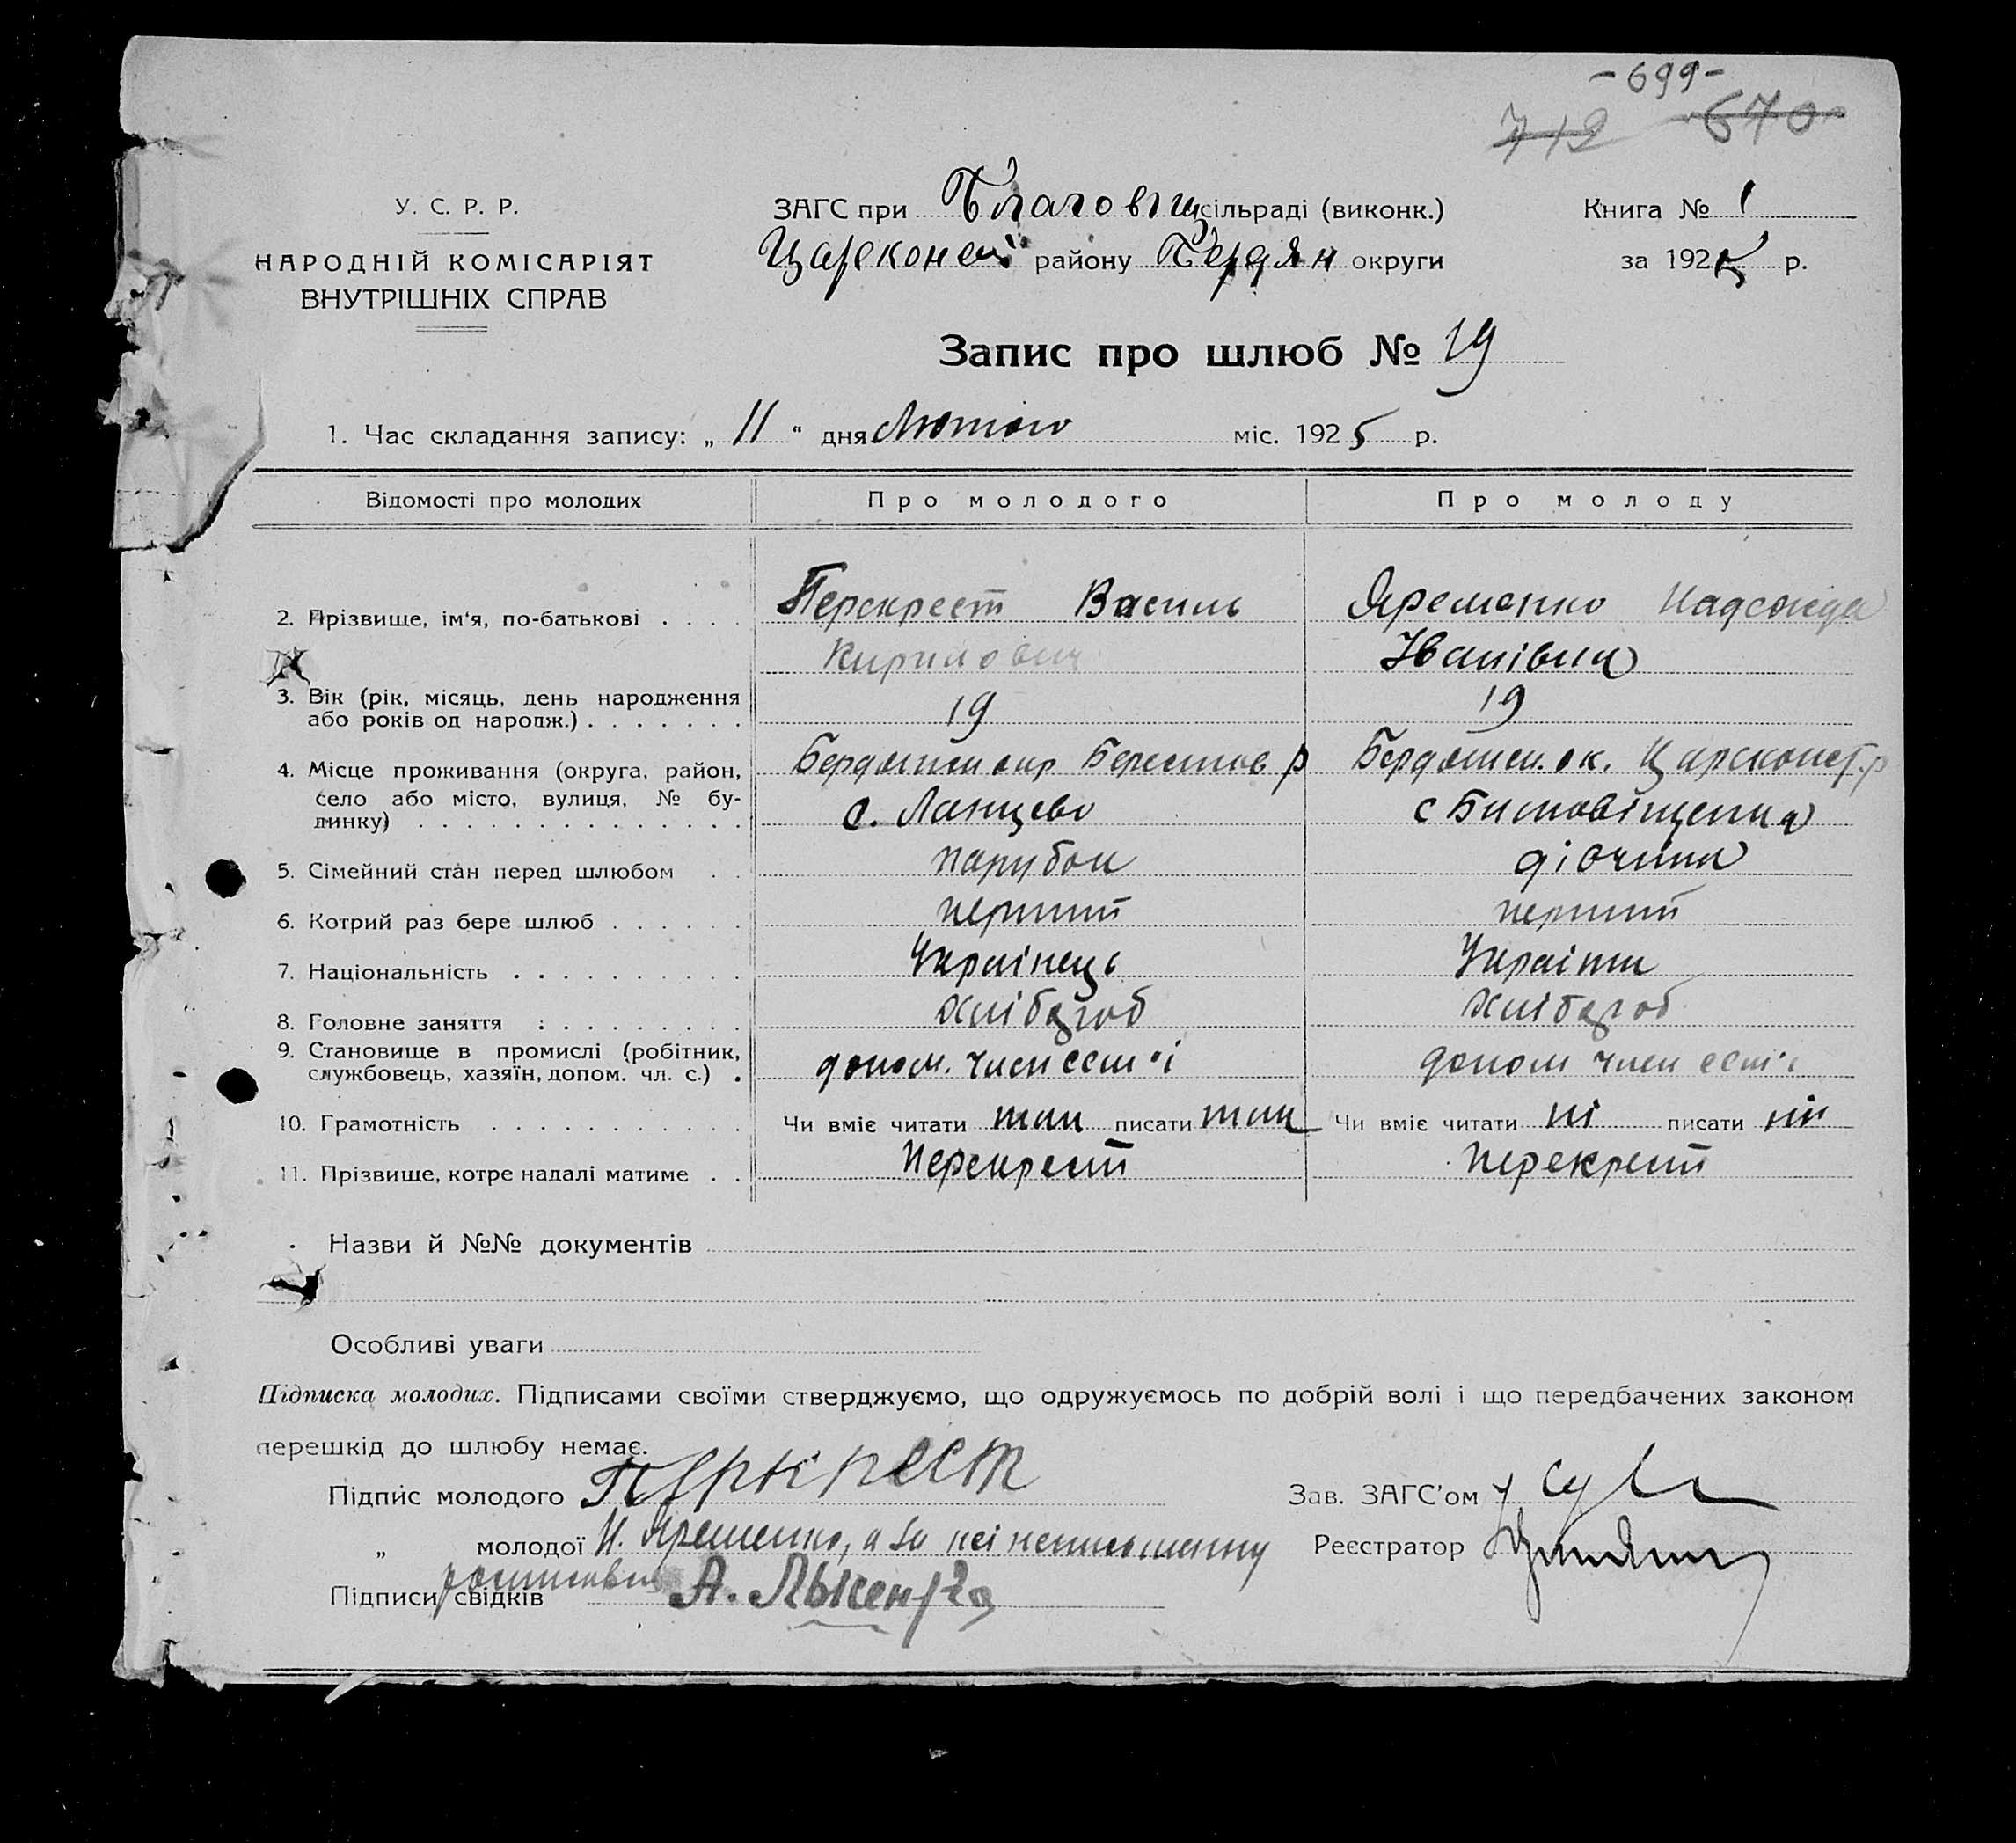 -699-
712 670
У. С. Р. Р.
НАРОДНІЙ КОМІСАРІЯТ
ВНУТРІШНІХ СПРАВ
ЗАГС при Благовіщ сільраді (виконк.)
Царекон район у Бердян округи
Книга № 1
за 1925 р.
Запис про шлюб № 19
1. Час складання запису: „ 11 “ дня Лютого міс. 1925 р.
Відомості про молодих Про молодого Про молоду
2. Прізвище, ім‘я, по-батькові . . . . Перекрест Василь Яременко Надежда
Кирилович Іванівна
3. Вік (рік, місяць, день народження
або років од народж.) . . . . . . . 19 19
4. Місце проживання (округа, район, Бердянськ окр Берестов р Бердянськ. ок. Царсконст. р
село або місто, вулиця, № бу- с. Ланцево с Благовіщенка
динку) . . . . . . . . . . . . . .
5. Сімейний стан перед шлюбом . . парубок дівчина
6. Котрий раз бере шлюб . . . . . . перший перший
7. Національність . . . . . . . . . . Українець Украінка
8. Головне заняття . . . . . . . . . хлібороб хлібороб
9. Становище в промислі (робітник,
службовець, хазяїн, допом. чл. с.) . допом. член сем'і допом член сем'і
10. Грамотність . . . . . . . . . . . Чи вміє читати так писати так Чи вміє читати ні писати ні
11. Прізвище, котре надалі матиме . . Перекрест Перекрест
Назви й №№ документів
Особливі уваги
Підписка молодих. Підписами своїми стверджуємо, що одружуємось по добрій волі і що передбачених законом
перешкід до шлюбу немає.
Підпис молодого Перкрест
Зав. ЗАГС’ом
„ молодої Н. Яременко, а за неі неписьменну
Реєстратор
росписався
Підписи свідків А.